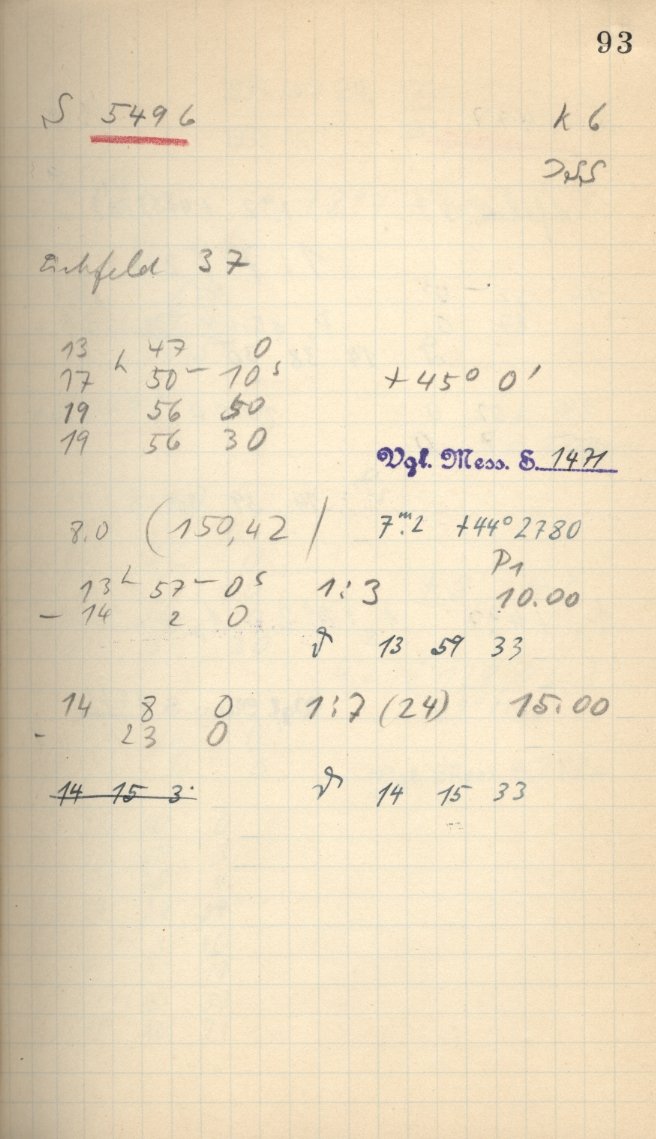 93
S 5496 K 6
Eichfeld 37
13 47 0
17 h 50 m 10 s +45° 0'
19 56 50
19 56 30
Vgl. Mess. S. 1471
8.0 (150,42) 7.m2 +44° 2780
P1
13 h 57 m 0 s 1:3 10.00
- 14 2 0
13 59 33
14 8 0 1:7 (24) 15.00
- 23 0
14 15 3 14 15 33